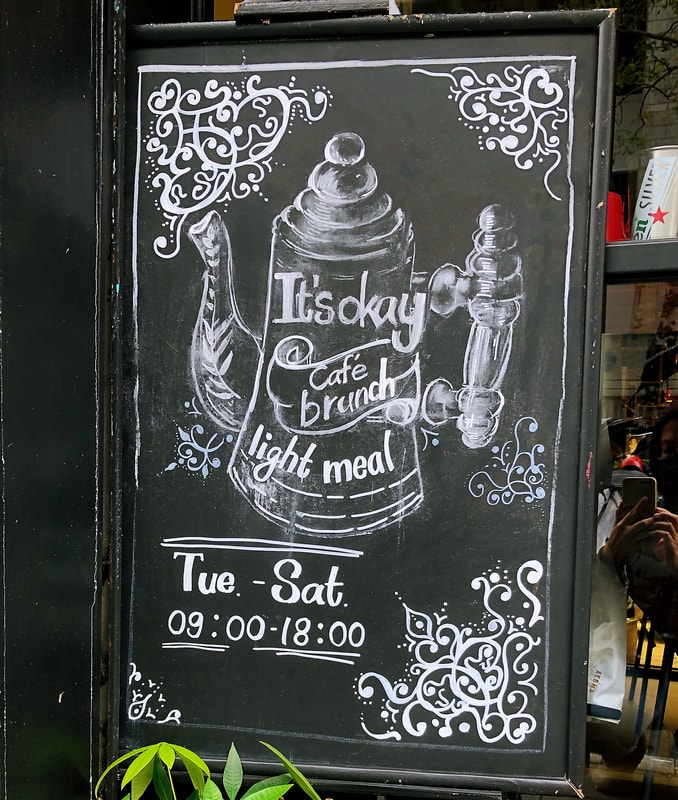 It's okay
Café
brunch
light meal
Tue. - Sat.
09:00-18:00
SILVER